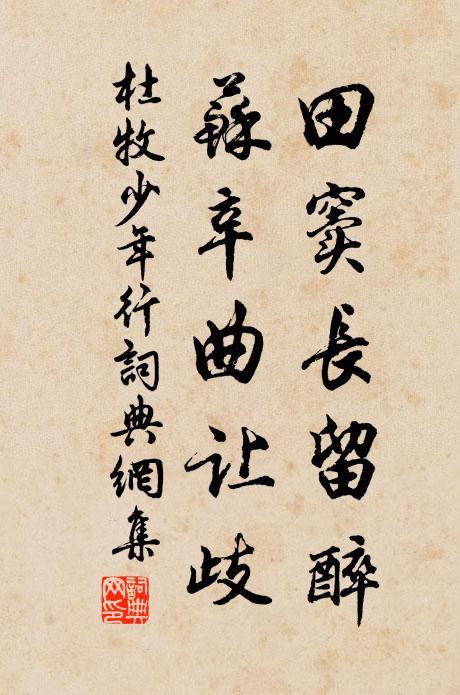 田竇長留醉
蘇辛曲让歧
杜牧少年行詞典網集
詞典网印